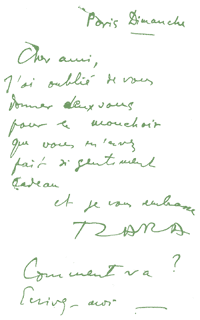 Paris Dimanche
Cher ami,
J'ai oublié de vous
donner deux sous
pour le mouchoir
que vous m'avez
fait si gentiment
cadeau
et je vous embrasse
TZARA
Comment va ?
Ecrivez-moi